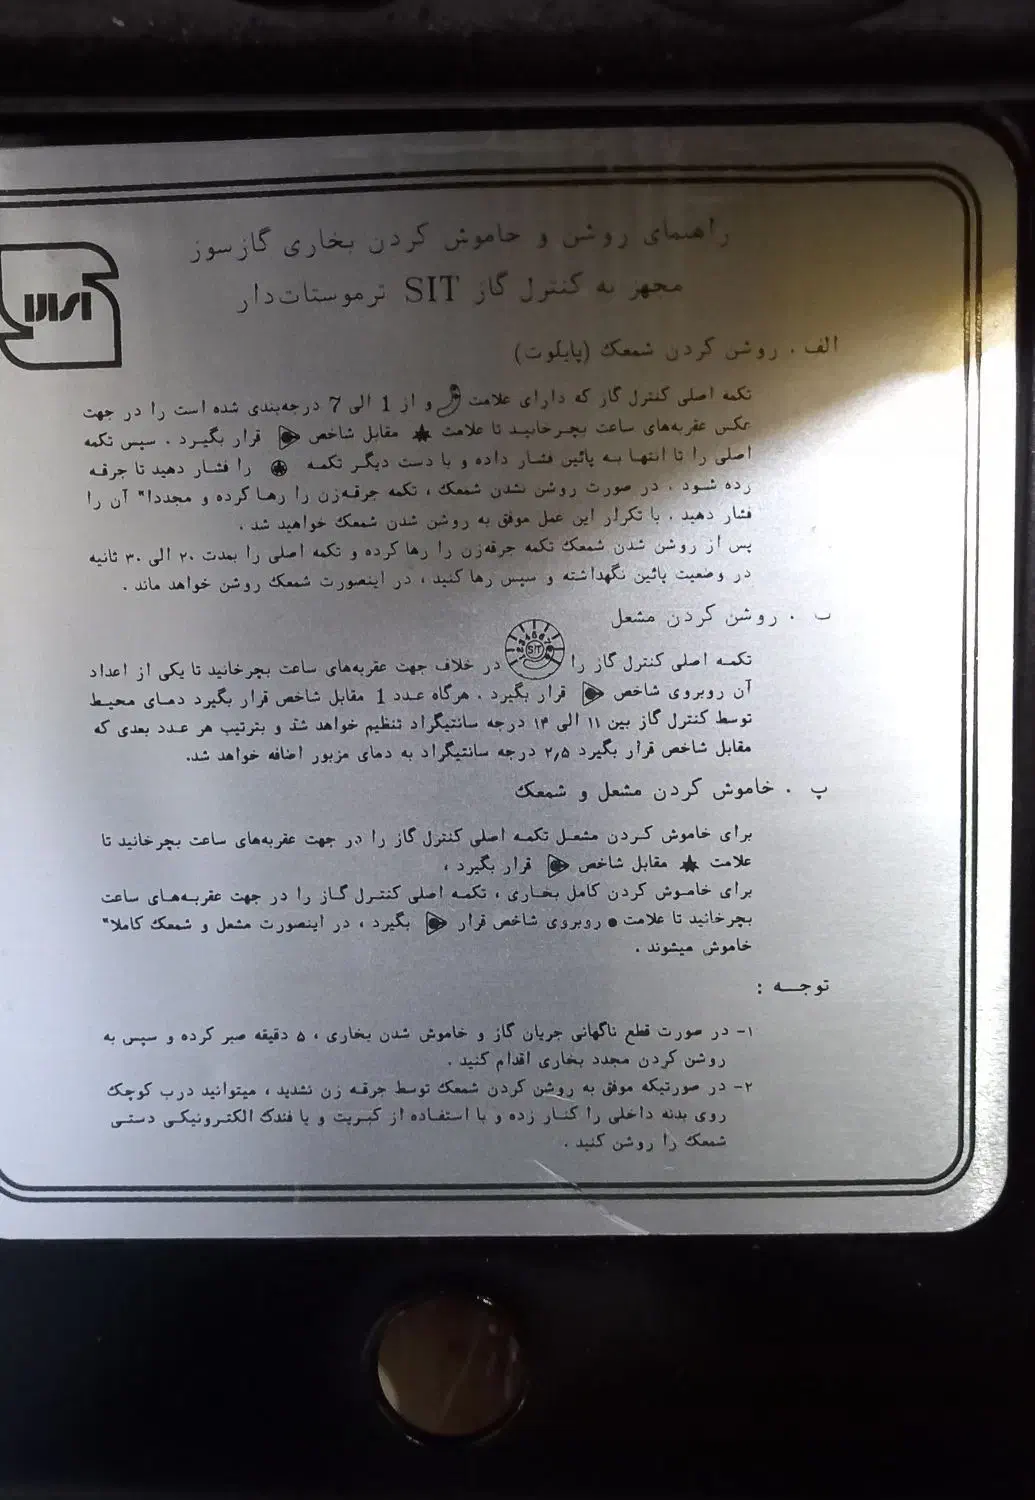 راهنمای روشن و خاموش کردن بخاری گازسوز
مجهز به کنترل گاز SIT ترموستات‌دار
الف . روشن کردن شمعک (پایلوت)
تکمه اصلی کنترل گاز که دارای علامت و از 1 الی 7 درجه‌بندی شده است را در جهت
عکس عقربه‌های ساعت بچرخانید تا علامت ★ مقابل شاخص قرار بگیرد . سپس تکمه
اصلی را تا انتها به پائین فشار داده و با دست دیگر تکمه را فشار دهید تا جرقه
زده شود . در صورت روشن نشدن شمعک ، تکمه جرقه‌زن را رها کرده و مجددا" آن را
فشار دهید . با تکرار این عمل موفق به روشن شدن شمعک خواهید شد .
پس از روشن شدن شمعک تکمه جرقه‌زن را رها کرده و تکمه اصلی را بمدت ۲۰ الی ۳۰ ثانیه
در وضعیت پائین نگهداشته و سپس رها کنید ، در اینصورت شمعک روشن خواهد ماند .
ب . روشن کردن مشعل
تکمه اصلی کنترل گاز را SIT در خلاف جهت عقربه‌های ساعت بچرخانید تا یکی از اعداد
آن روبروی شاخص قرار بگیرد . هرگاه عدد 1 مقابل شاخص قرار بگیرد دمای محیط
توسط کنترل گاز بین ۱۱ الی ۱۴ درجه سانتیگراد تنظیم خواهد شد و بترتیب هر عدد بعدی که
مقابل شاخص قرار بگیرد ۲٫۵ درجه سانتیگراد به دمای مزبور اضافه خواهد شد.
پ . خاموش کردن مشعل و شمعک
برای خاموش کردن مشعل تکمه اصلی کنترل گاز را در جهت عقربه‌های ساعت بچرخانید تا
علامت ★ مقابل شاخص قرار بگیرد ،
برای خاموش کردن کامل بخاری ، تکمه اصلی کنترل گاز را در جهت عقربه‌های ساعت
بچرخانید تا علامت ● روبروی شاخص قرار بگیرد ، در اینصورت مشعل و شمعک کاملا"
خاموش میشوند .
توجه :
۱- در صورت قطع ناگهانی جریان گاز و خاموش شدن بخاری ، ۵ دقیقه صبر کرده و سپس به
روشن کردن مجدد بخاری اقدام کنید .
۲- در صورتیکه موفق به روشن کردن شمعک توسط جرقه زن نشدید ، میتوانید درب کوچک
روی بدنه داخلی را کنار زده و با استفاده از کبریت و یا فندک الکترونیکی دستی
شمعک را روشن کنید .